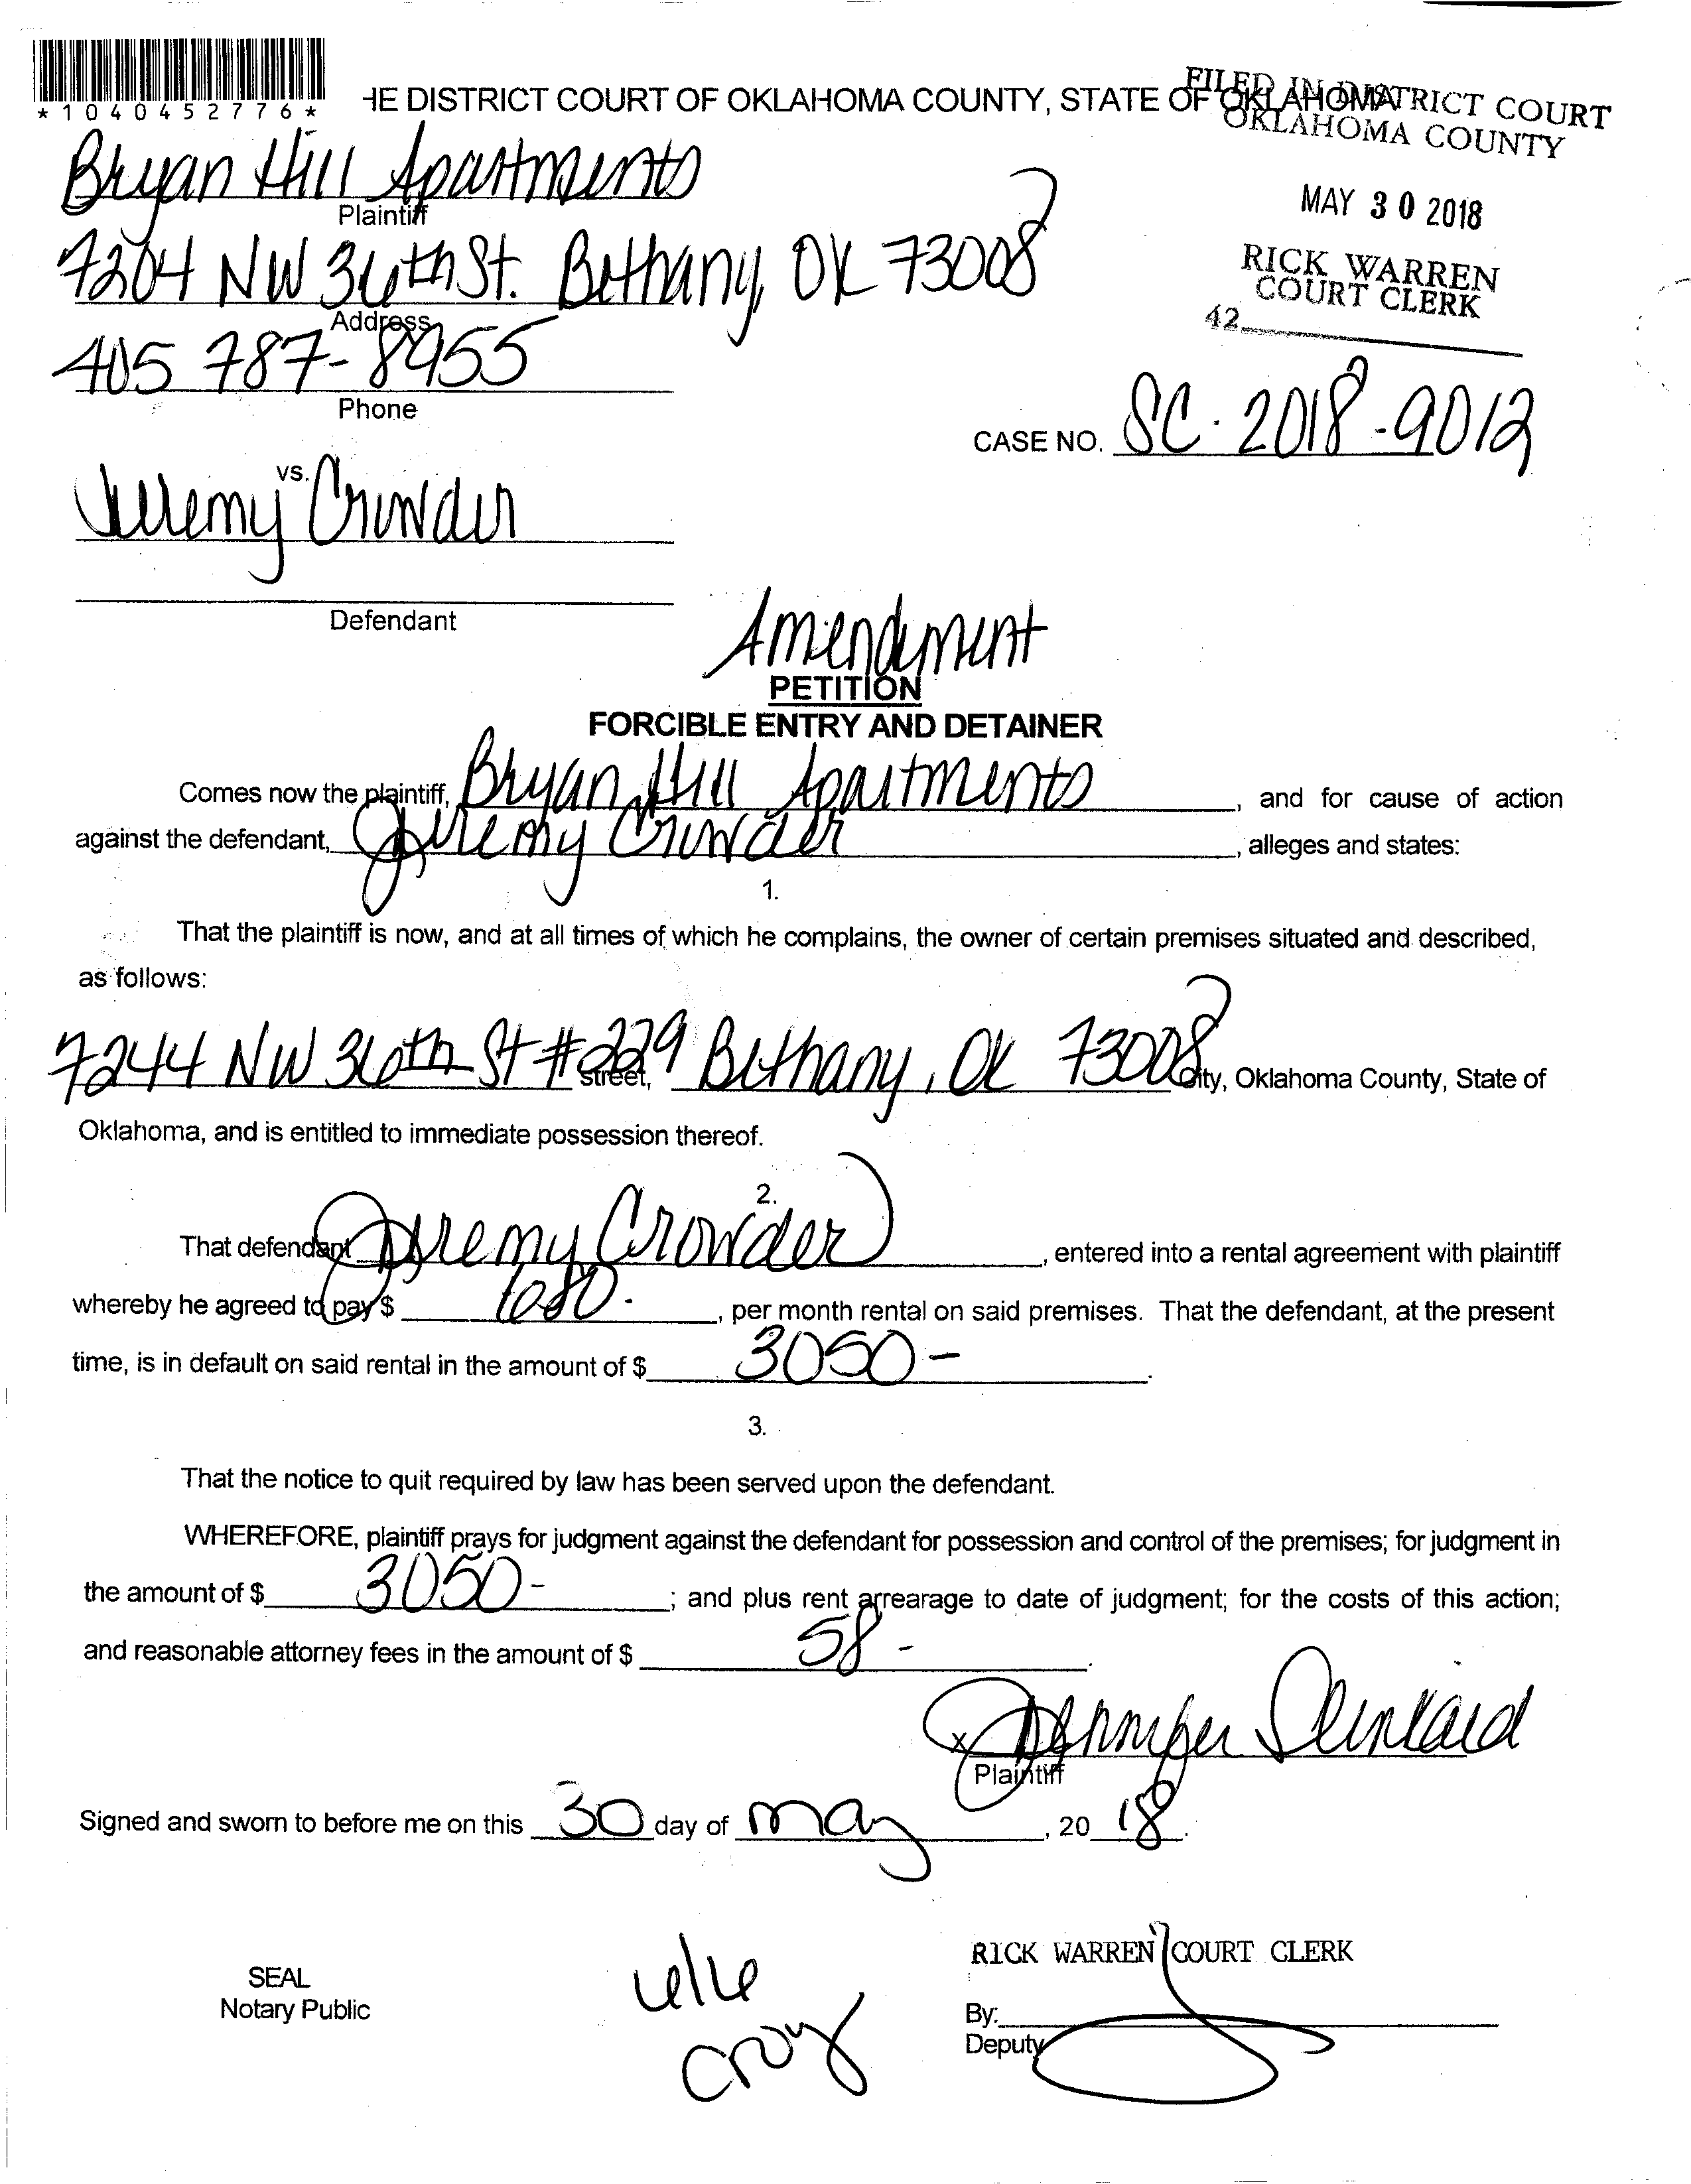 *1040452776*
HE DISTRICT COURT OF OKLAHOMA COUNTY, STATE OF OKLAHOMA
FILED IN DISTRICT COURT
OKLAHOMA COUNTY
MAY 30 2018
RICK WARREN
COURT CLERK
42
Bryan Hill Apartments
Plaintiff
7204 NW 36th St. Bethany, OK 73008
Address
405 787-8955
Phone
CASE NO. SC-2018-9012
vs.
Jeremy Crowder
Defendant
Amendment
PETITION
FORCIBLE ENTRY AND DETAINER
Comes now the plaintiff, Bryan Hill Apartments, and for cause of action
against the defendant, Jeremy Crowder, alleges and states:
1.
That the plaintiff is now, and at all times of which he complains, the owner of certain premises situated and described,
as follows:
7244 NW 36th St #229 Bethany, OK 73008
street, City, Oklahoma County, State of
Oklahoma, and is entitled to immediate possession thereof.
2.
That defendant Jeremy Crowder, entered into a rental agreement with plaintiff
whereby he agreed to pay $ 680., per month rental on said premises. That the defendant, at the present
time, is in default on said rental in the amount of $ 3050-.
3.
That the notice to quit required by law has been served upon the defendant.
WHEREFORE, plaintiff prays for judgment against the defendant for possession and control of the premises; for judgment in
the amount of $ 3050-; and plus rent arrearage to date of judgment; for the costs of this action;
and reasonable attorney fees in the amount of $ 58-.
x Jennifer
Plaintiff
Signed and sworn to before me on this 30 day of May, 2018.
SEAL
Notary Public
RICK WARREN COURT CLERK
By:
Deputy